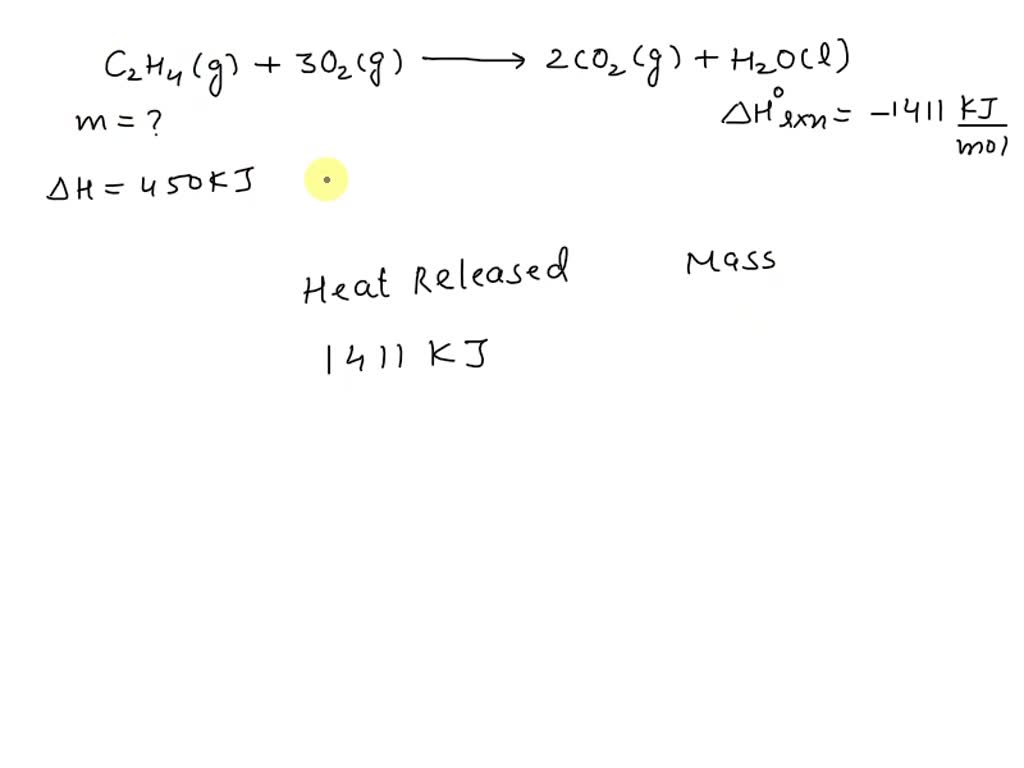 C₂H₄(g) + 3O₂(g) ⟶ 2CO₂(g) + H₂O(l)
m = ?
ΔH°rxn = -1411 KJ/mol
ΔH = 450KJ
Heat Released Mass
1411 KJ